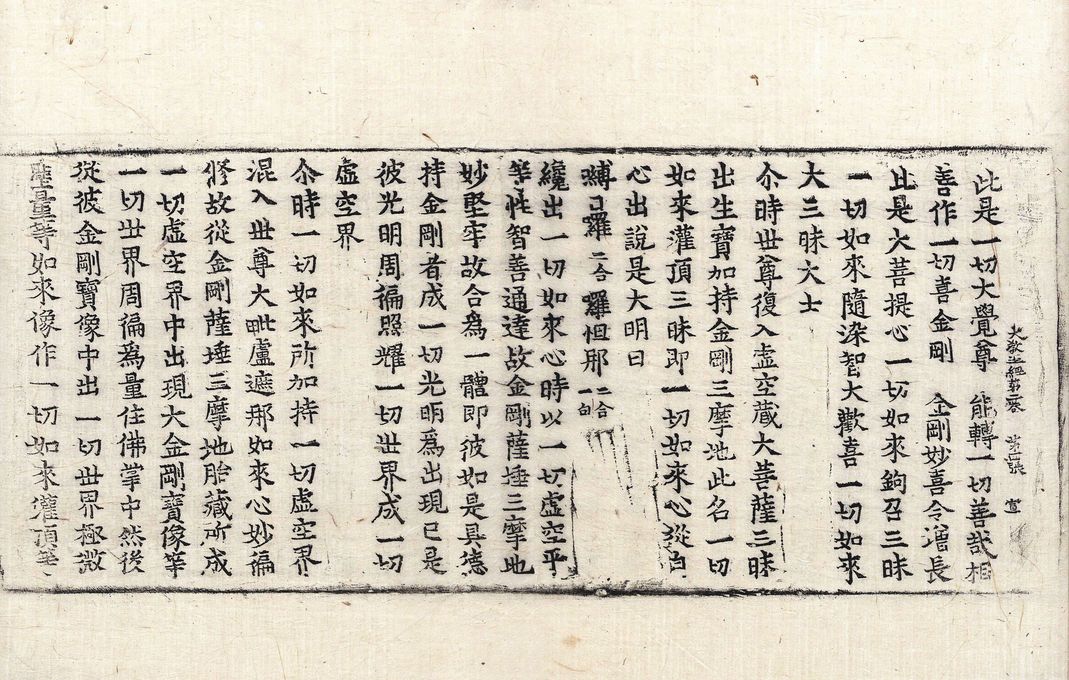 大教王經第二卷 第二張 宣
此是一切大覺尊 能轉一切善哉相
善作一切善金剛 金剛妙喜令增長
此是大菩提心一切如來鉤召三昧
一切如來隨染智大歡喜一切如來
大三昧大士
尒時世尊復入虛空藏大菩薩三昧
出生寶加持金剛三摩地此名一切
如來灌頂三昧即一切如來心從自
心出說是大明曰
嚩日羅 二合 囉怛那 二合 一句
纔出一切如來心時以一切虛空平
等性智善通達故金剛薩埵三摩地
妙堅牢故合爲一體即彼如是具德
持金剛者成一切光明爲出現已是
彼光明周徧照耀一切世界成一切
虛空界
尒時一切如來所加持一切虛空界
混入世尊大毗盧遮那如來心妙徧
修故從金剛薩埵三摩地胎藏所成
一切虛空界中出現大金剛寶像等
一切世界周徧爲量住佛掌中然後
從彼金剛寶像中出一切世界極微
塵量等如來像作一切如來灌頂等